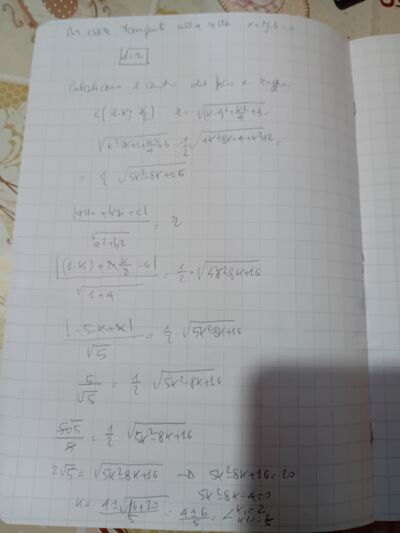 Per essere tangente alla retta x+2y-6=0
d=r
Calcoliamo il centro del fascio e raggio
C(1-k; k/2) r = √((k-1)²+k²/4+3)
√(k²-2k+1+k²/4+3) = 1/2 √(4k²-8k+4+k²+12) =
= 1/2 √(5k²-8k+16)
|ax₀+by₀+c| / √(a²+b²) = r
|(1-k)+2·k/2-6| / √(1+4) = 1/2 · √(5k²-8k+16)
|-5-k+k| / √5 = 1/2 · √(5k²-8k+16)
5/√5 = 1/2 · √(5k²-8k+16)
5√5/5 = 1/2 · √(5k²-8k+16)
2√5 = √(5k²-8k+16) → 5k²-8k+16=20
5k²-8k-4=0
k = (4±√(16+20))/5 = (4±6)/5 = < k₁=2